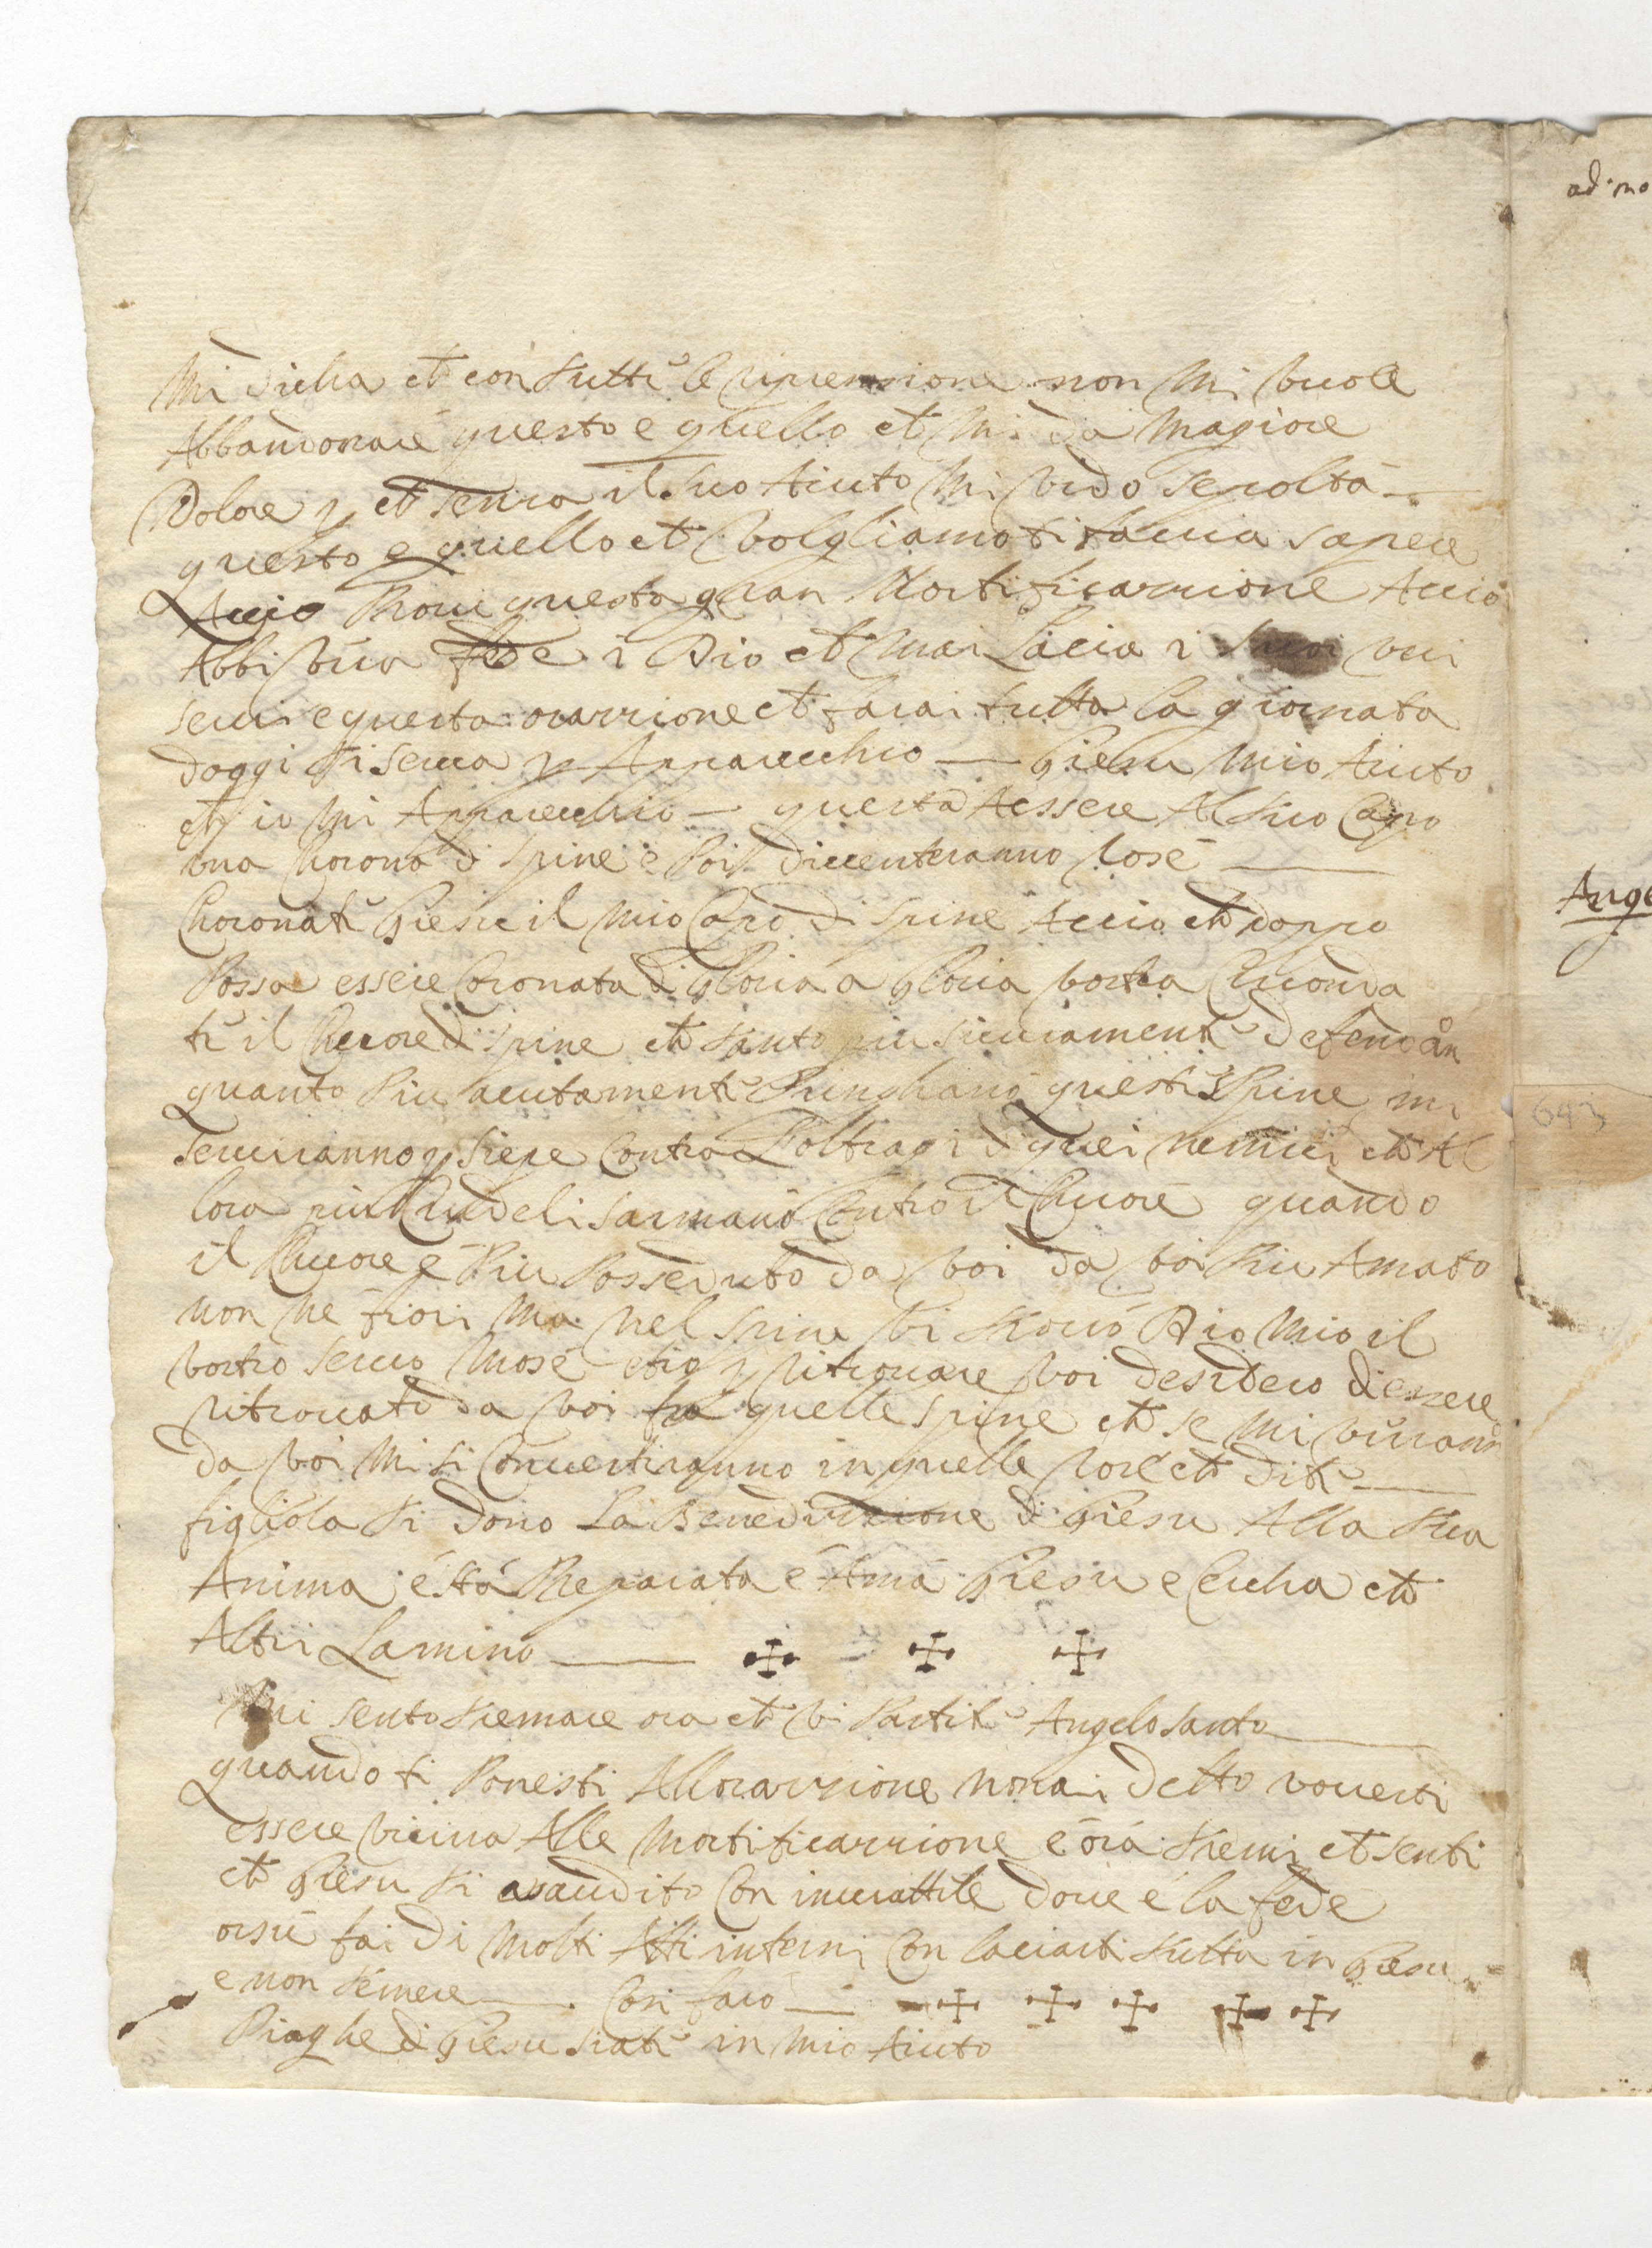 Mi dicha ch con tutti le riprensione non mi vuole
Abbandonare questo e quello ch mi da magiore
Dolore p ch senza il suo Aiuto mi vedo sepolta
questo e quello ch volgliamo ti faccia sapere
Accio Provi questa gran Mortificazzione Accio
Abbi viva fede i Dio ch mai Lacia i suoi vui
servi e questa orazzione ch farai tutta la giornata
doggi ti serva p Apparecchio — Giesu mio Aiuto
ch io mi Apparecchio — questa Aessere Al tuo Capo
una Chorona di spine e Poi diventeranno rose —
Choronati Giesu il mio Capo di spine Accio ch doppo
Possa essere Coronata di gloria a gloria vostra Circonda
ti il Chuore di spine ch tanto piu sicuramenti defendan
quanto Piu acutamenti Punghano questi spine mi
serviranno p siepe Contro Loltragi di quei nemici ch Al
lora piu Crudeli sarmano Contro il Chuore quando
il Chuore e Piu Posseduto da voi da voi Piu Amato
non ne fiori ma nel spine vi trovo Dio mio il
vostro servo Mose ch io p ritrovare voi desidero dessere
ritrovato da voi fra quelle spine ch se mi
da voi mi si Convertiranno in quelle rose ch diti —
figliola ti dono La Benedizzione di Giesu Alla tua
Anima é stá Preparata é Ama Giesu e Cercha ch
Altri Lamino — ✠ ✠ ✠
Mi sento tremare ora ch vi Partiti Angelo santo —
quando ti Ponesti Allorazzione nonai detto vouerti
essere vicina Alle mortificazzione e ora tremi ch senti
ch Giesu ti asaudito Con dove é la fede
orsu fai di molti Atti interni Con laciarti tutta in Giesu
e non temere — Cosi faró — ✠ ✠ ✠ ✠ ✠
Piaghe di Giesu siati in mio Aiuto
ad mo
Ange
643